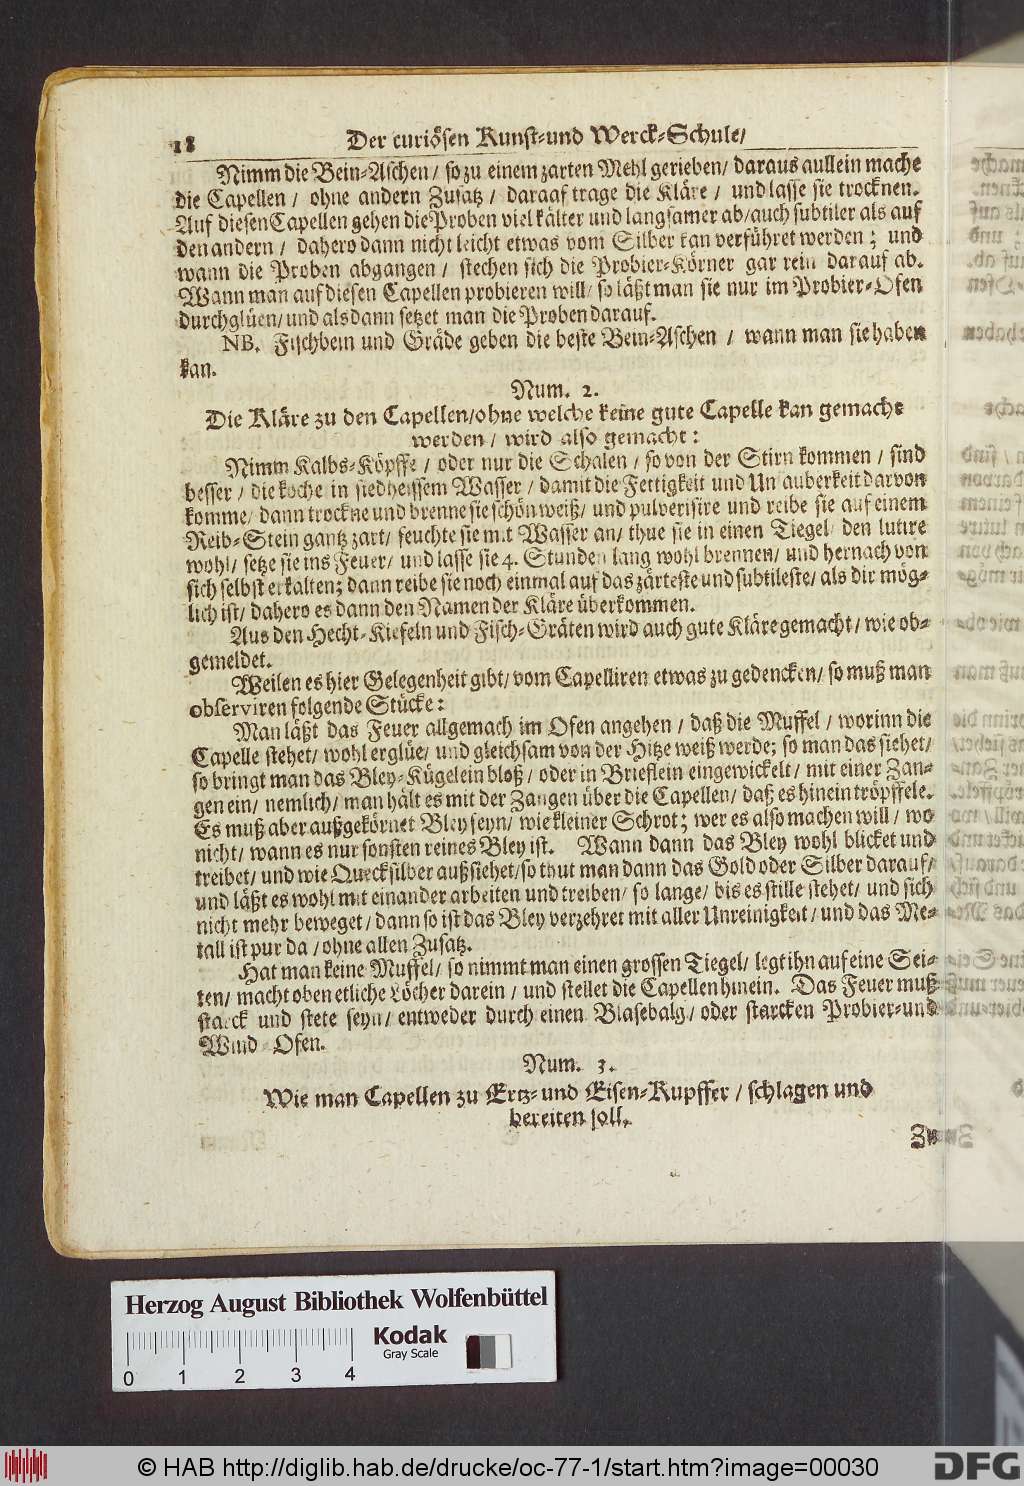 18 Der curiösen Kunst-und Werck-Schule/
Nimm die Bein-Aschen / so zu einem zarten Mehl gerieben/ daraus aullein mache
die Capellen / ohne andern Zusatz / daraaf trage die Kläre / und lasse sie trocknen.
Auf diesen Capellen gehen die Proben viel kälter und langsamer ab/ auch subtiler als auf
den andern / dahero dann nicht leicht etwas vom Silber kan verführet werden; und
wann die Proben abgangen / stechen sich die Probier-Körner gar rein darauf ab.
Wann man auf diesen Capellen probieren will/ so läßt man sie nur im Probier-Ofen
durchglüen/ und alsdann setzet man die Proben darauf.
NB. Fischbein und Gräde geben die beste Bein-Aschen / wann man sie haben
kan.
Num. 2.
Die Kläre zu den Capellen/ohne welche keine gute Capelle kan gemacht
werden / wird also gemacht:
Nimm Kalbs-Köpffe / oder nur die Schalen / so von der Stirn kommen / sind
besser / die koche in siedheissem Wasser / damit die Fettigkeit und Unsauberkeit darvon
komme/ dann trockne und brenne sie schön weiß/ und pulverisire und reibe sie auf einem
Reib-Stein gantz zart/ feuchte sie mit Wasser an/ thue sie in einen Tiegel/ den lutire
wohl/ setze sie ins Feuer/ und lasse sie 4. Stunden lang wohl brennen/ und hernach von
sich selbst erkalten; dann reibe sie noch einmal auf das zärteste und subtileste/ als dir mög-
lich ist/ dahero es dann den Namen der Kläre überkommen.
Aus den Hecht-Kiefeln und Fisch-Gräten wird auch gute Kläre gemacht/ wie ob-
gemeldet.
Weilen es hier Gelegenheit gibt/ vom Capelliren etwas zu gedencken/ so muß man
observiren folgende Stücke:
Man läßt das Feuer allgemach im Ofen angehen / daß die Muffel / worinn die
Capelle stehet/ wohl erglüe/ und gleichsam von der Hitze weiß werde; so man das siehet/
so bringt man das Bley-Kügelein bloß/ oder in Brieflein eingewickelt/ mit einer Zan-
gen ein/ nemlich/ man hält es mit der Zangen über die Capellen/ daß es hinein tröpffele.
Es muß aber außgekörnet Bley seyn/ wie kleiner Schrot; wer es also machen will/ wo
nicht/ wann es nur sonsten reines Bley ist. Wann dann das Bley wohl blicket und
treibet/ und wie Quecksilber außsiehet/so thut man dann das Gold oder Silber darauf/
und läßt es wohl mit einander arbeiten und treiben/ so lange/ bis es stille stehet/ und sich
nicht mehr beweget/ dann so ist das Bley verzehret mit aller Unreinigkeit/ und das Me-
tall ist pur da / ohne allen Zusatz.
Hat man keine Muffel/ so nimmt man einen grossen Tiegel/ legt ihn auf eine Sei-
ten/ macht oben etliche Löcher darein / und stellet die Capellen hinein. Das Feuer muß
starck und stete seyn/ entweder durch einen Blasebalg/ oder starcken Probier-und
Wind-Ofen.
Num. 3.
Wie man Capellen zu Ertz-und Eisen-Kupffer / schlagen und
bereiten soll.
Zu
Herzog August Bibliothek Wolfenbüttel
Kodak
Gray Scale
0 1 2 3 4
© HAB http://diglib.hab.de/drucke/oc-77-1/start.htm?image=00030
DFG